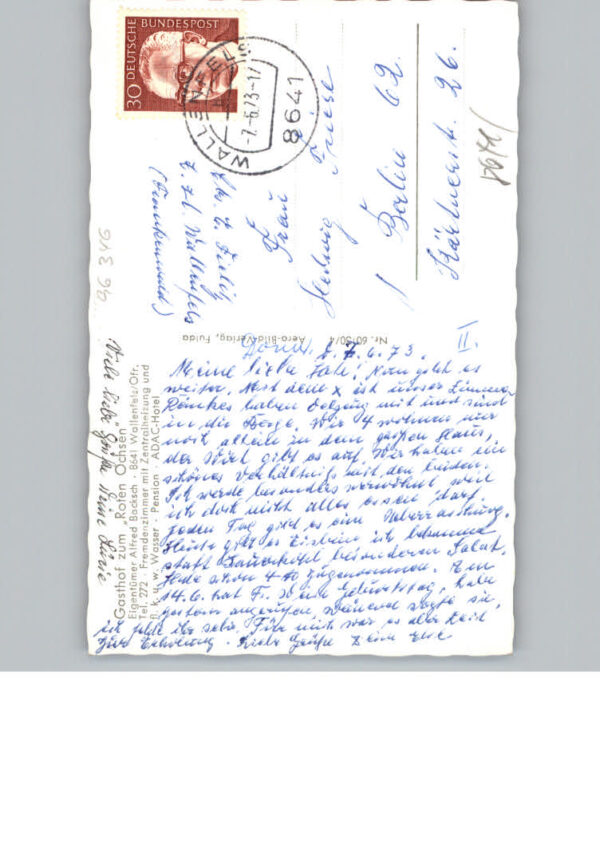 30 DEUTSCHE BUNDESPOST
WALLENFELS
-7.-6.73-17
8641
Frau
Hedwig Friese
1 Berlin 62.
Kärtnerstr. 26.
z. Zt. Wallenfels
(Frankenwald)
96 346
Nr. 60150/4 Aero-Bild-Verlag, Fulda
Gasthof zum „Roten Ochsen"
Eigentümer Alfred Backsch · 8641 Wallenfels/Ofr.
Tel. 272 · Fremdenzimmer mit Zentralheizung und
fl. k. u. w. Wasser · Pension · ADAC-Hotel
Viele liebe Grüße
7.6.73. II.
Meine liebe Nun geht es
weiter. dem x ist unser Zimmer
haben und sind
in die Berge. Wir 4 wohnen hier
noch alleine in dem großen Haus,
der Wirt gibt es auf. Wir haben ein
schönes Verhältniß mit den beiden.
Ich werde besonders verwöhnt weil
ich doch nicht alles essen darf.
Jeden Tag gibt es eine Ueberraschung.
Heute gibt es Eisbein ich bekomme
statt Sauerkohl besonderen Salat.
Habe schon zugenommen. Am
14.6. hat Geburtstag, habe
gestern angerufen, weinend sagte sie,
ich fehle ihr sehr. Für mich war es aber
Erholung. Liebe Grüße Deine Else